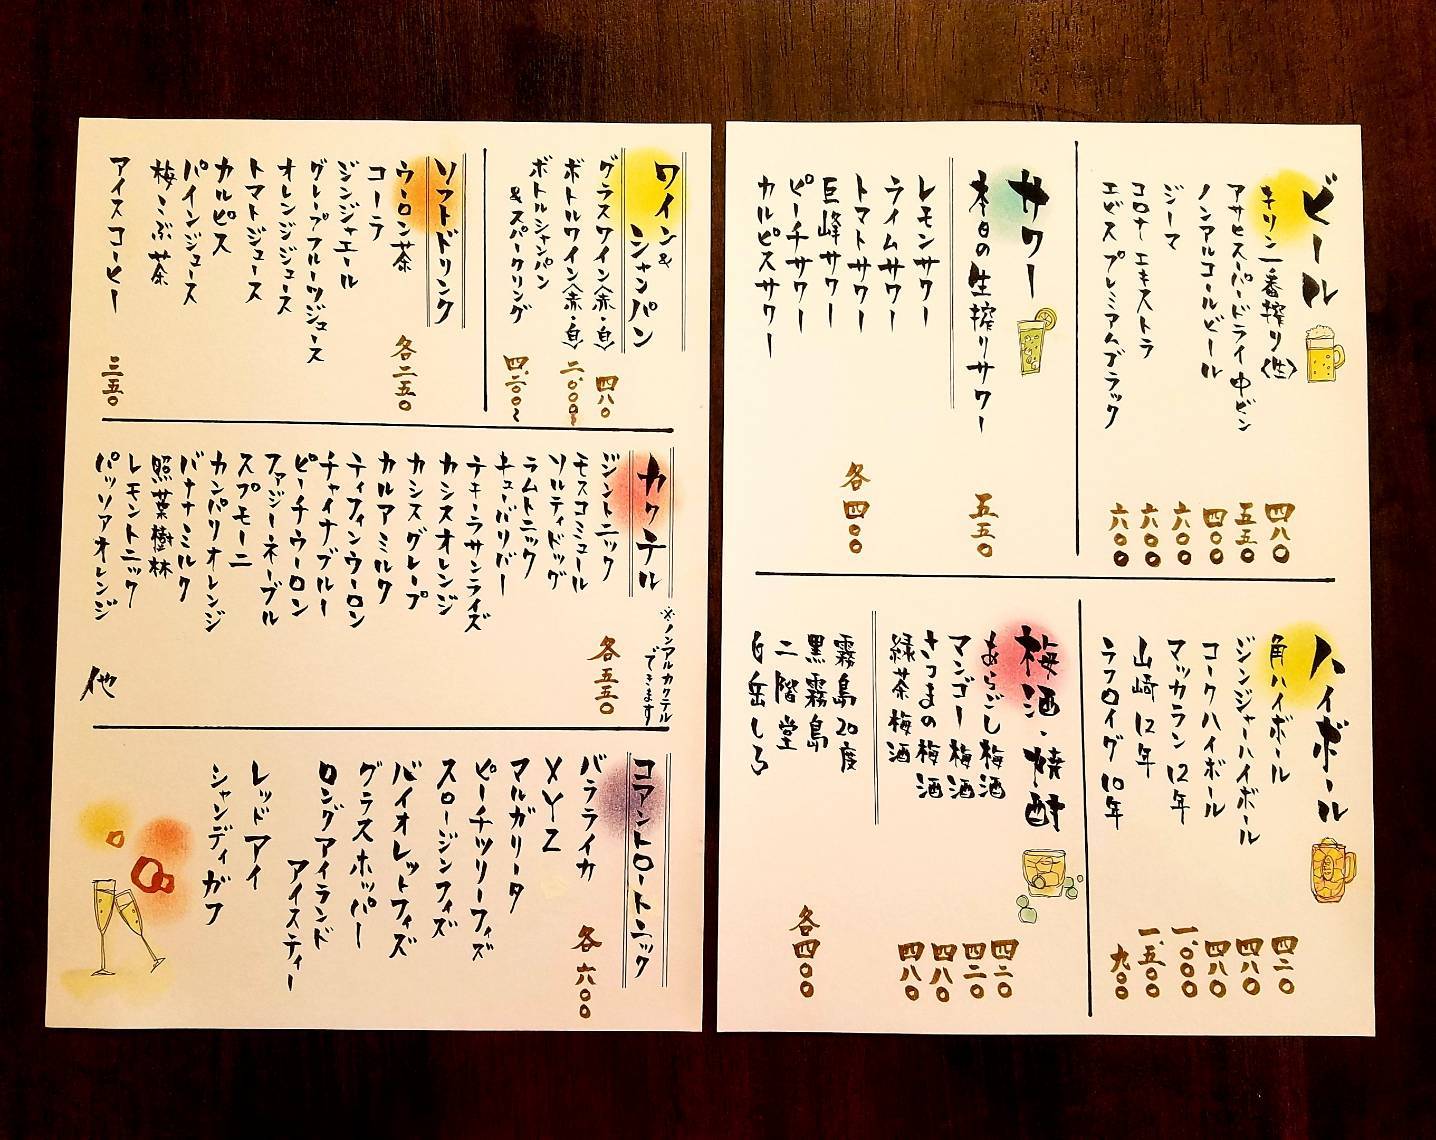 ビール
キリン一番搾り〈生〉 四八〇
アサヒスーパードライ中ビン 五五〇
ノンアルコールビール 四〇〇
ジーマ 六〇〇
コロナ エキストラ 六〇〇
エビス プレミアムブラック 六〇〇
サワー
本日の生搾りサワー 五五〇
レモンサワー
ライムサワー
トマトサワー
巨峰サワー 各四〇〇
ピーチサワー
カルピスサワー
ハイボール
角ハイボール 四二〇
ジンジャーハイボール 四八〇
コークハイボール 四八〇
マッカラン12年 一、〇〇〇
山崎12年 一、五〇〇
ラフロイグ10年 九〇〇
梅酒・焼酎
あらごし梅酒 四二〇
マンゴー梅酒 四二〇
さつまの梅酒 四八〇
緑茶梅酒 四八〇
霧島20度
黒霧島
二階堂 各四〇〇
白岳しろ
ワイン&シャンパン
グラスワイン〈赤・白〉 四八〇
ボトルワイン〈赤・白〉 二、〇〇〇〜
ボトルシャンパン
&スパークリング 四、二〇〇〜
ソフトドリンク
ウーロン茶 各二五〇
コーラ
ジンジャエール
グレープフルーツジュース
オレンジジュース
トマトジュース
カルピス
パインジュース
梅こぶ茶
アイスコーヒー 三五〇
カクテル
※ノンアルカクテル
できます
ジントニック 各五五〇
モスコミュール
ソルティドッグ
ラムトニック
キューバリバー
テキーラサンライズ
カシスオレンジ
カシスグレープ
カルアミルク
ティフィンウーロン
チャイナブルー
ピーチウーロン
ファジーネーブル
スプモーニ
カンパリオレンジ
バナナミルク
照葉樹林
レモントニック
パッソアオレンジ
他
コアントロートニック
バラライカ 各六〇〇
XYZ
マルガリータ
ピーチツリーフィズ
スロージンフィズ
バイオレットフィズ
グラスホッパー
ロングアイランド
アイスティー
レッドアイ
シャンディガフ